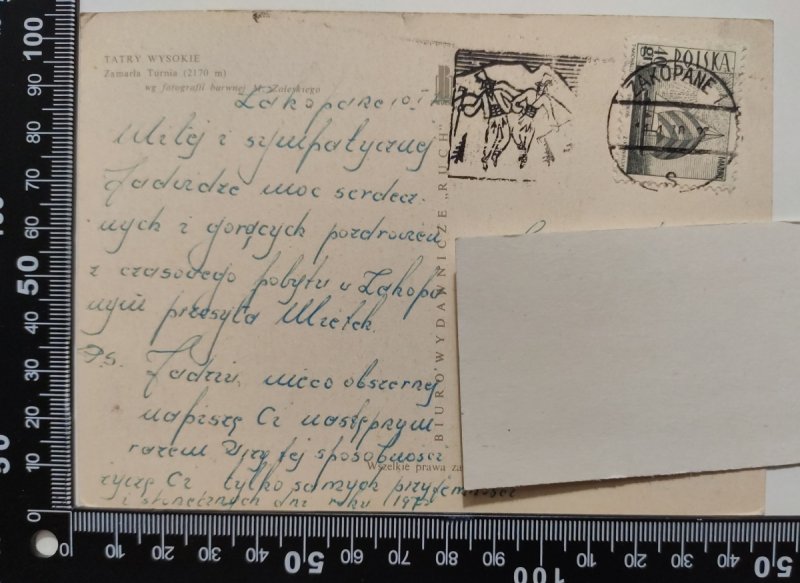 TATRY WYSOKIE
Zamarła Turnia (2170 m)
wg fotografii barwnej M. Zaleskiego
Zakopane
Miłej i sympatycznej
Jadwidze moc serdecz-
nych i gorących pozdrowień
z czasowego pobytu w Zakopa
nym przesyła Mietek.
Ps. Jadziu, nieco obszerniej
napiszę Ci następnym
razem. Przy tej sposobności
życzę Ci tylko samych przyjemności
i słonecznych dni roku
BIURO WYDAWNICZE „RUCH”
Wszelkie prawa za
POLSKA
ZAKOPANE 1